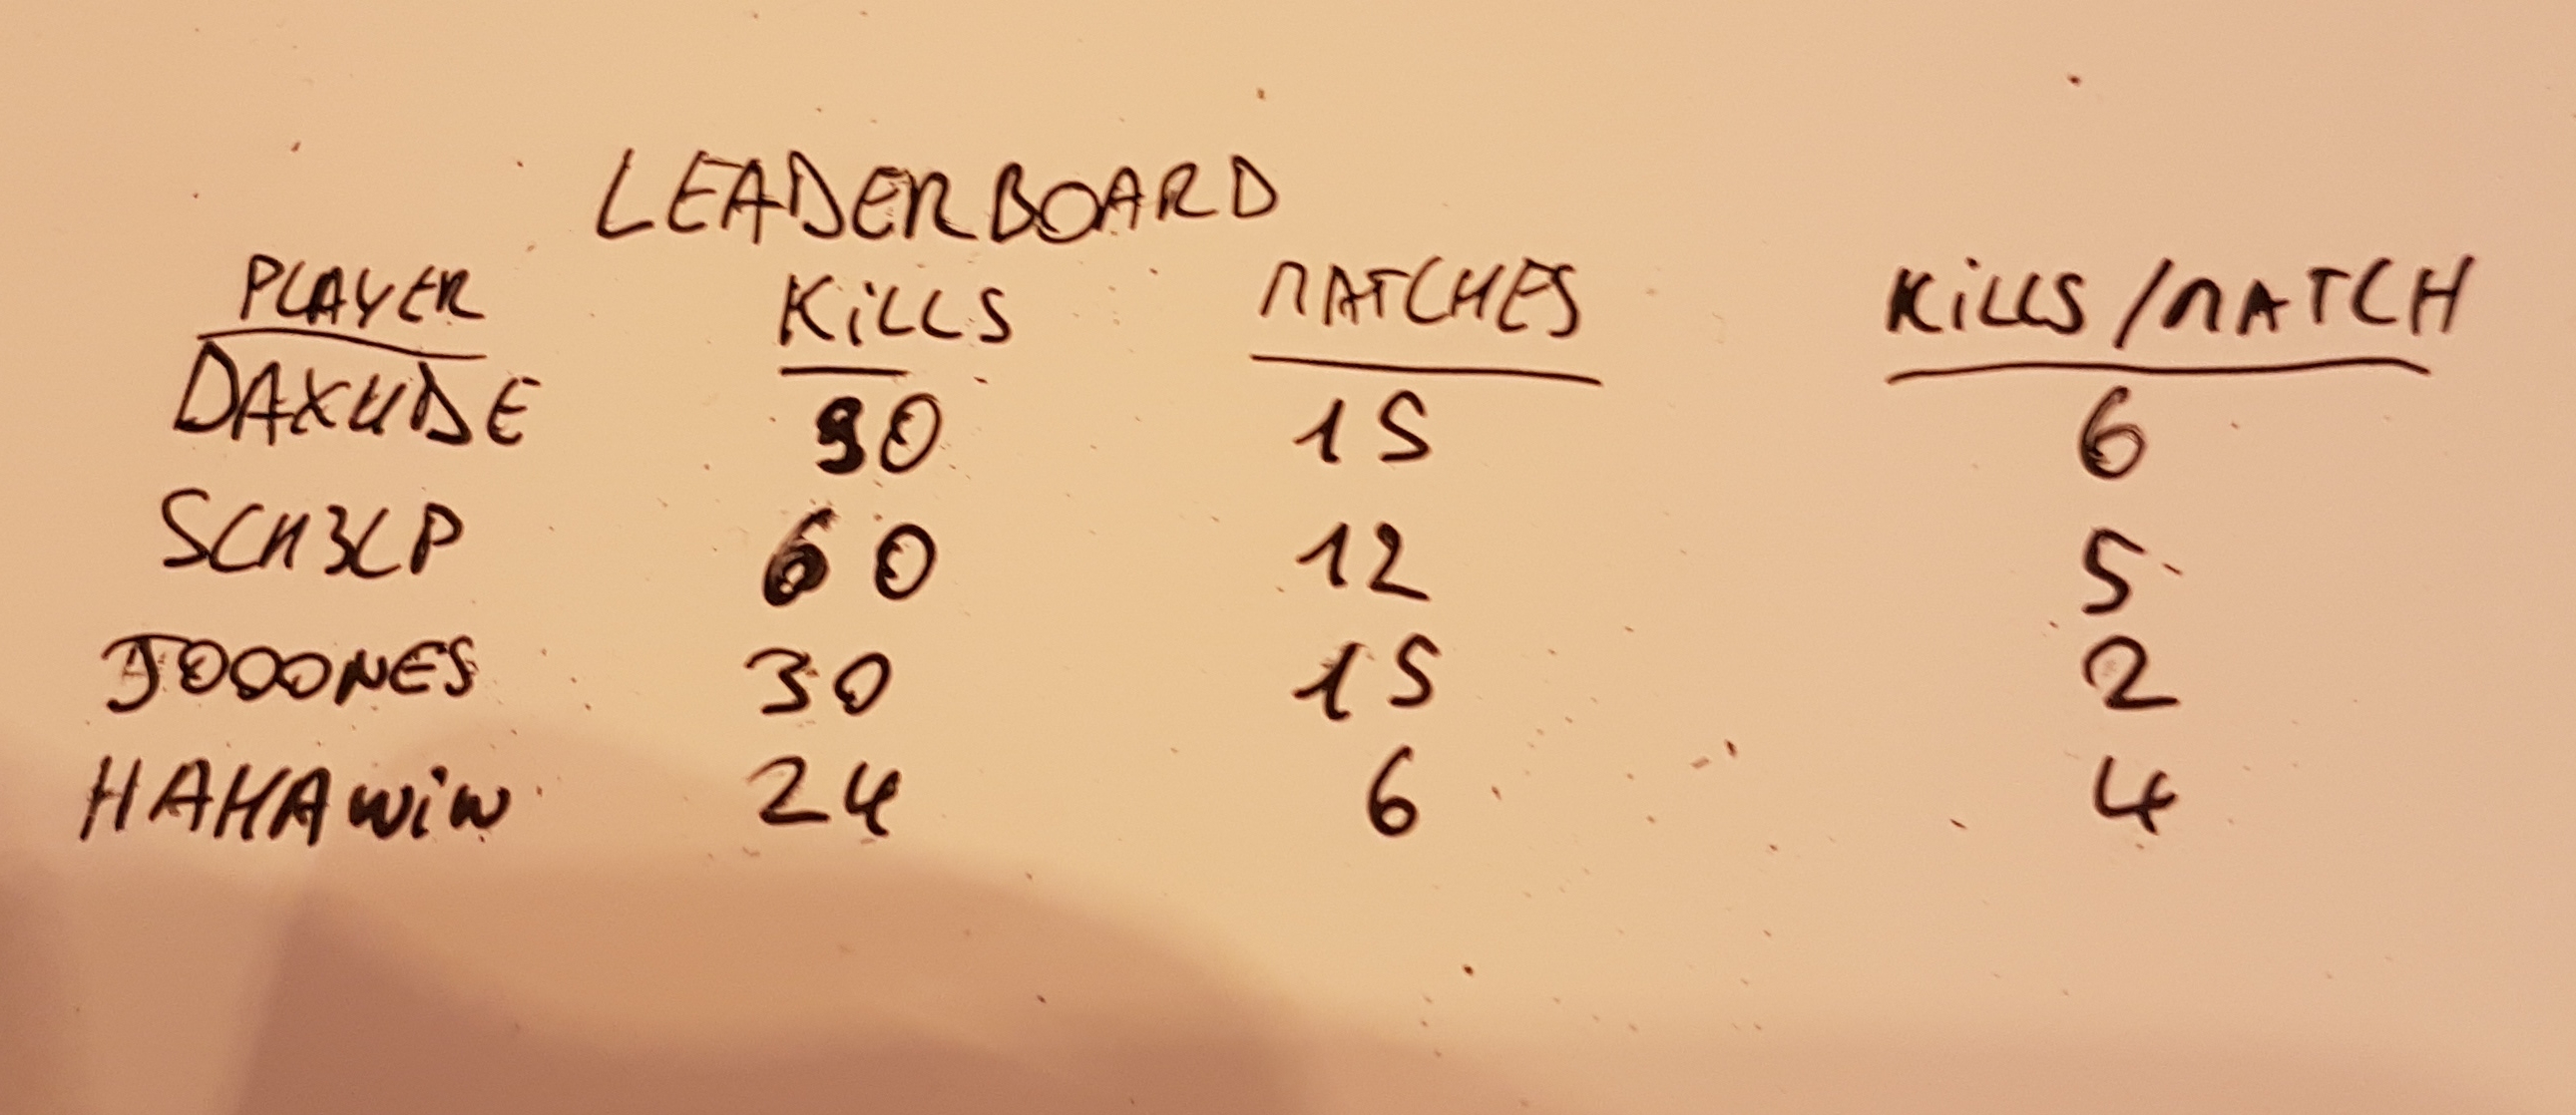 LEADERBOARD
PLAYER KiLLS MATCHES KiLLS/MATCH
DAXUDE 90 15 6
SCH3LP 60 12 5
JOOONES 30 15 2
HAHAWIN 24 6 4